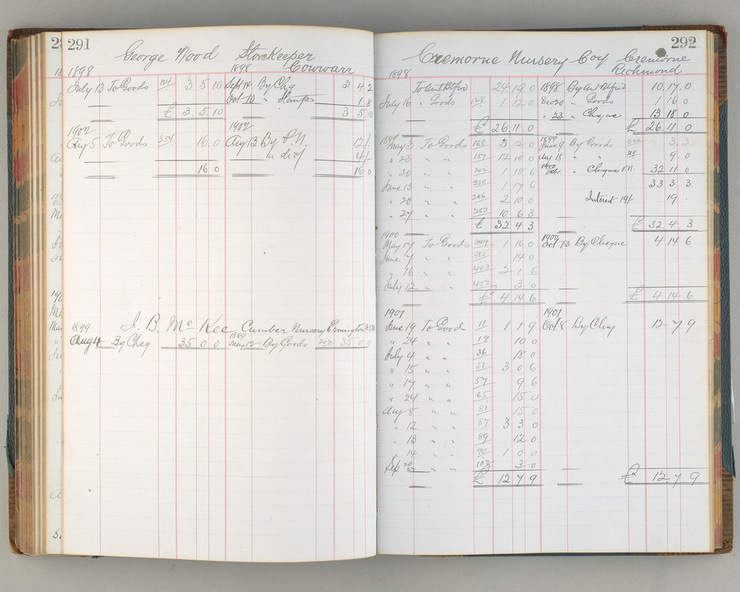 291
George Wood Storekeeper
Cowwarr
1898 1898
July 13 To Goods 3 5 10 Sept 14 By Chq 3 4 2
Oct 10 " Stamps 1 8
£ 3 5 10 3 5 10
1902 1902
Aug 5 To Goods 16 0 Aug 13 By P.N. 12/
" dis 4/
16 0 16 0
J. B. McKee Cumber Nursery
1899 1899
Aug 4 By Cheq 35 0 0 By Goods 35 0 0
292
Cremorne Nursery Coy Cremorne
Richmond
1898 1898
To Amt Bt fwd 24 19 0 By Amt Bt fwd 10 17 0
July 16 " Goods 1 12 0 " Goods 1 16 0
" 23 " Cheque 13 18 0
£ 26 11 0 £ 26 11 0
1899 1899
May 3 To Goods June 9 By Goods 3 3
" 23 " " 12 10 0 Aug 18 " " 9 0
" 30 " " 1 18 0 " Cheques 32 11 0
June 13 " " 1 17 6 33 3 3
" 20 " " 2 10 0 Interest 19/- 19
" 27 " " 10 6 3
£ 32 4 3 £ 32 4 3
1900 1900
May 17 To Goods 1 16 0 Oct 13 By Cheque 4 14 6
June 7 " " 14 0
" 16 " " 403 2 1 6
July 12 " " 3 0
£ 4 14 6 £ 4 14 6
1901 1901
June 19 To Goods 11 1 1 9 Oct 8 By Chq 12 7 9
" 24 " " 19 10 0
July 4 " " 36 18 0
" 15 " " 51 3 0 6
" 17 " " 57 9 6
" 24 " " 65 15 0
Aug 8 " " 81 15 0
" 12 " " 87 3 3 0
" 13 " " 89 12 0
" 14 " " 1 0 0
Sep 20 " " 3 0
£ 12 7 9 £ 12 7 9